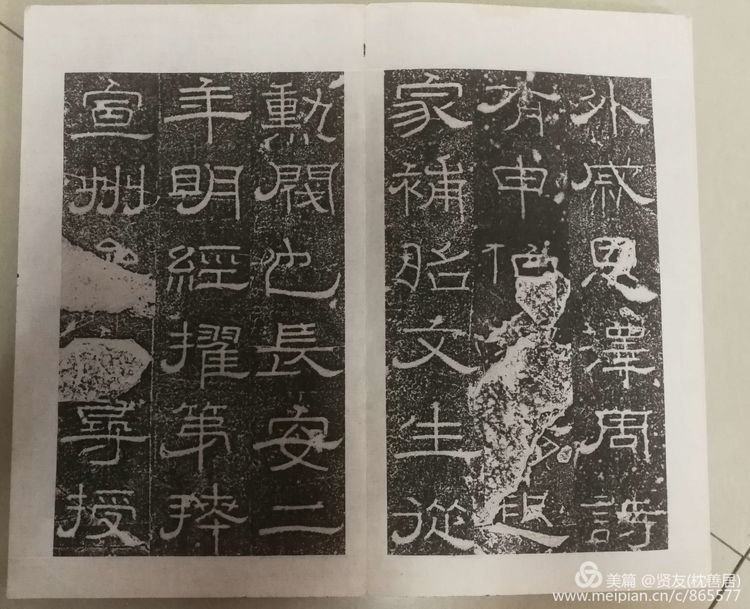 外戚恩澤周詩
有申伯列起
家補昭文生從
勳閥也長安二
年明經擢第拜
宣州參尋授
美篇 @贤友(枕善居)
www.meipian.cn/c/865577